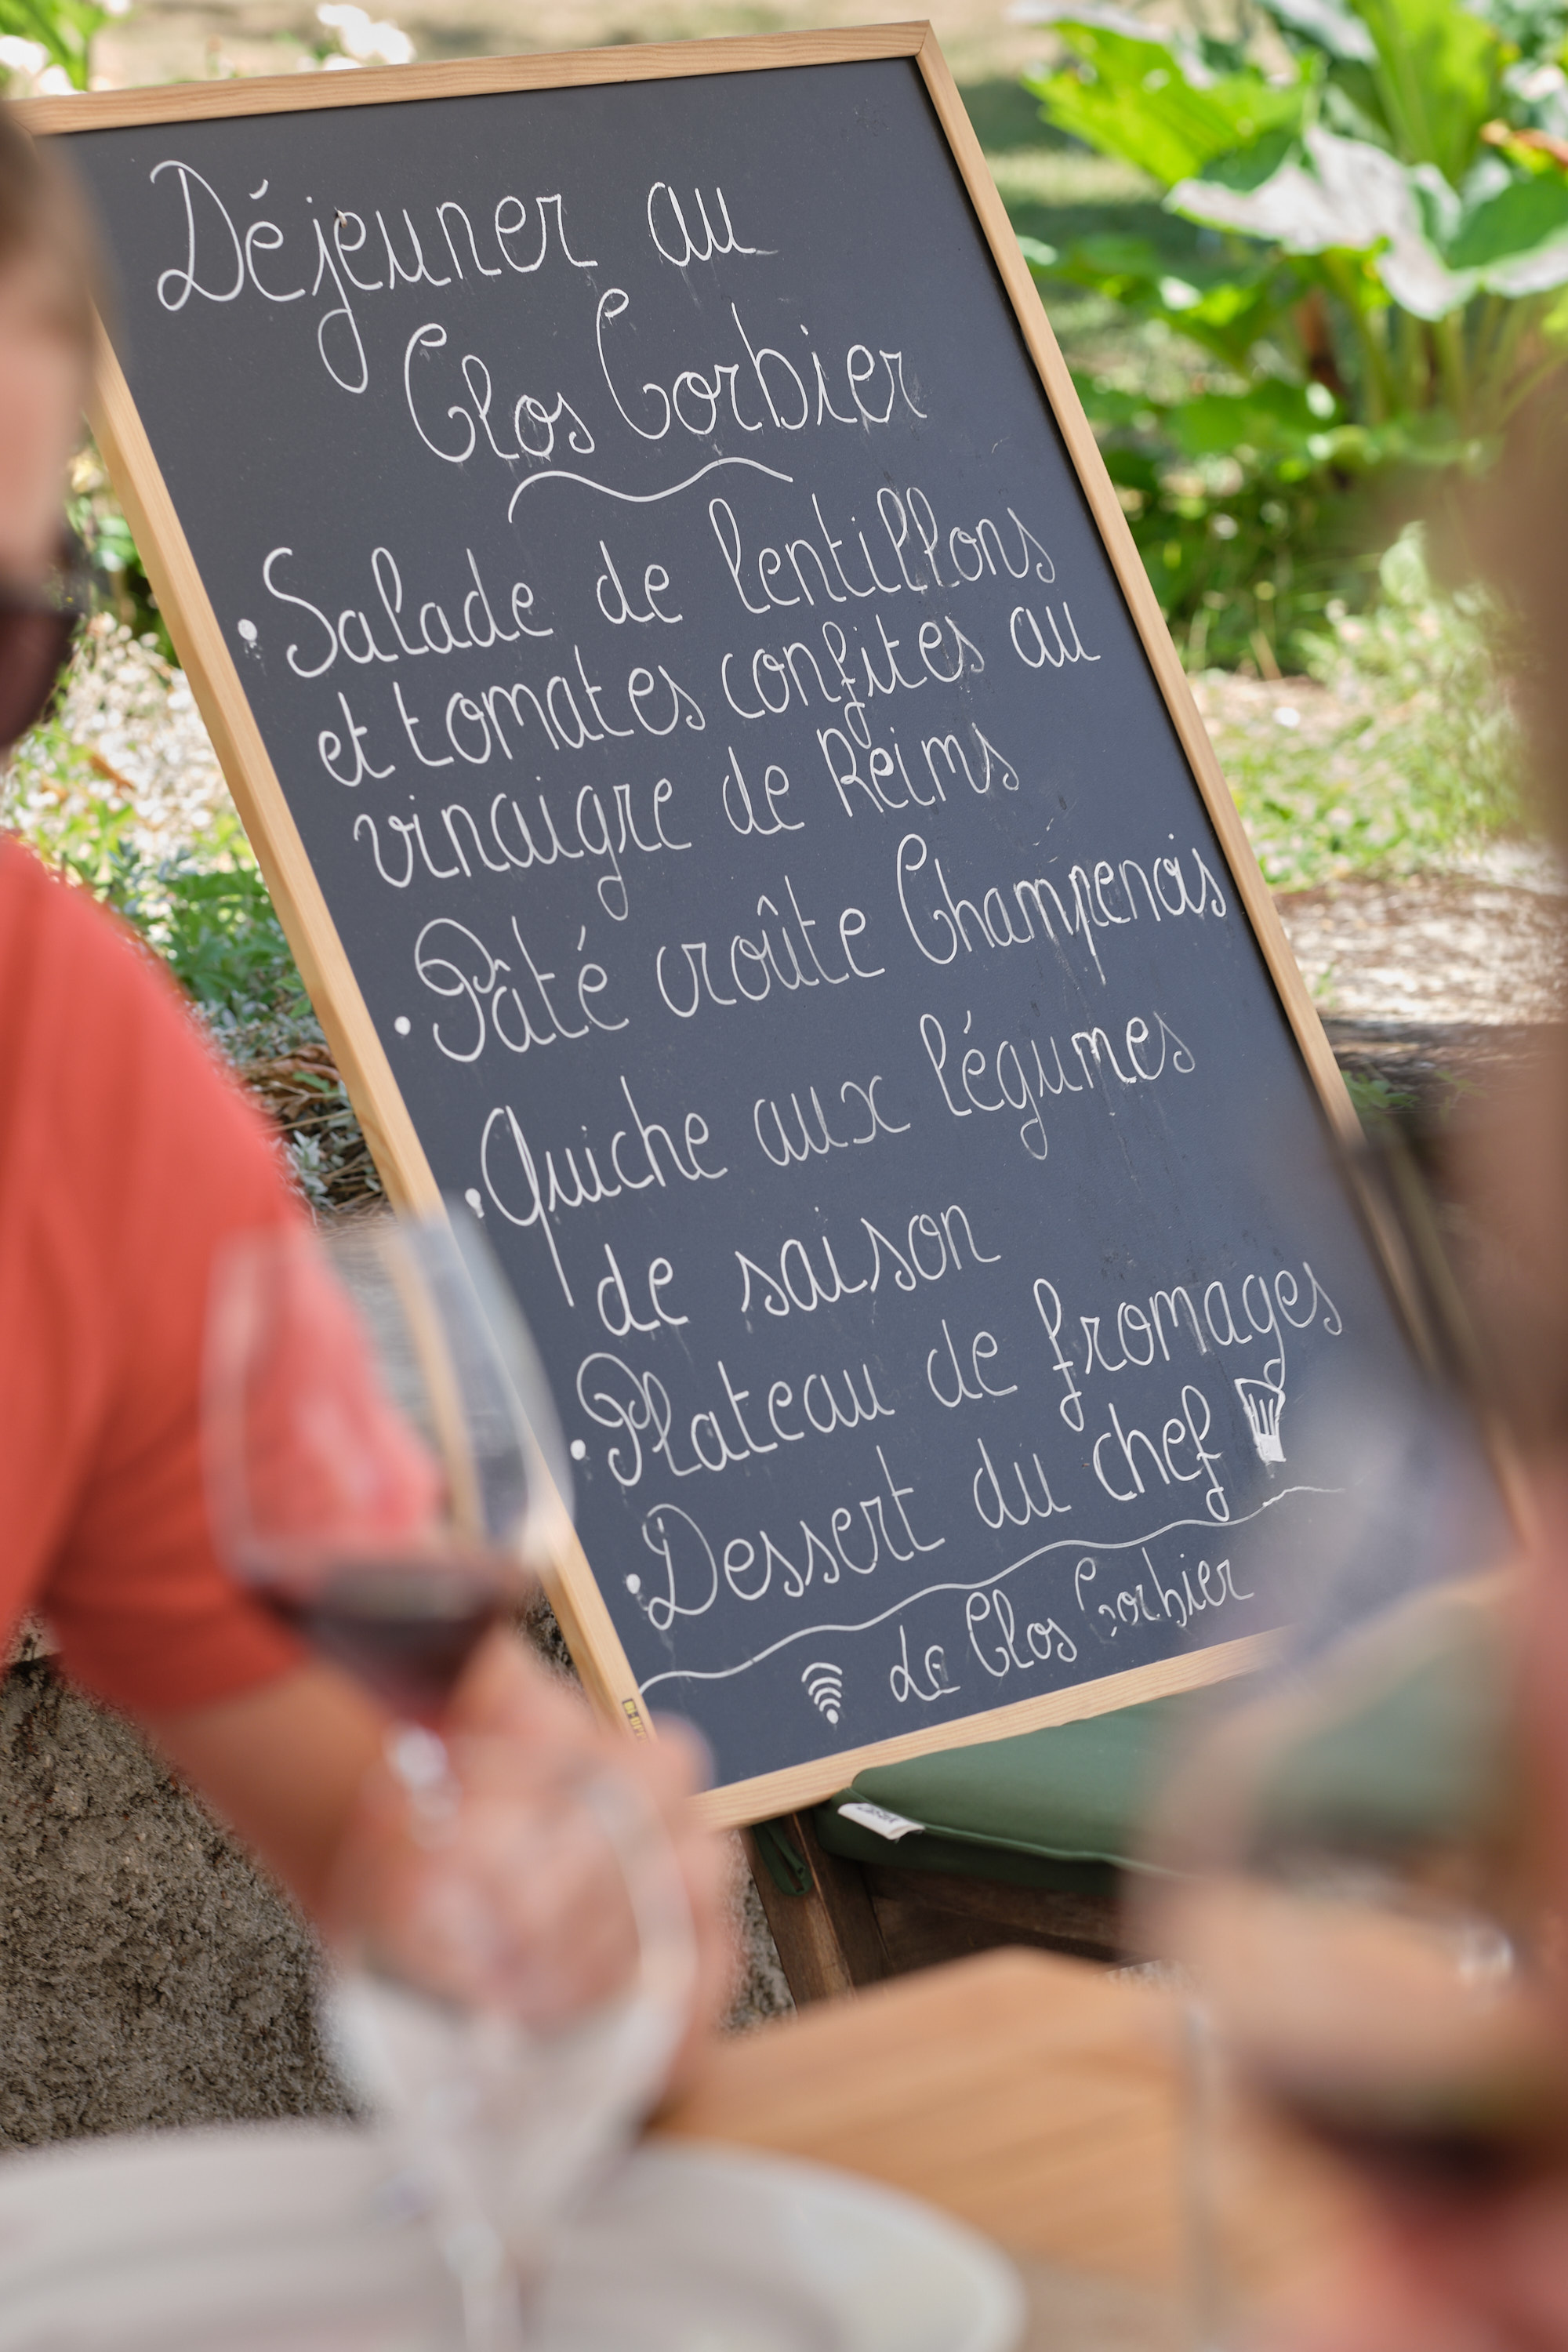 Déjeuner au
Clos Corbier
• Salade de lentillons
et tomates confites au
vinaigre de Reims
• Pâté croûte Champenois
• Quiche aux légumes
de saison
• Plateau de fromages
• Dessert du chef
Le Clos Corbier